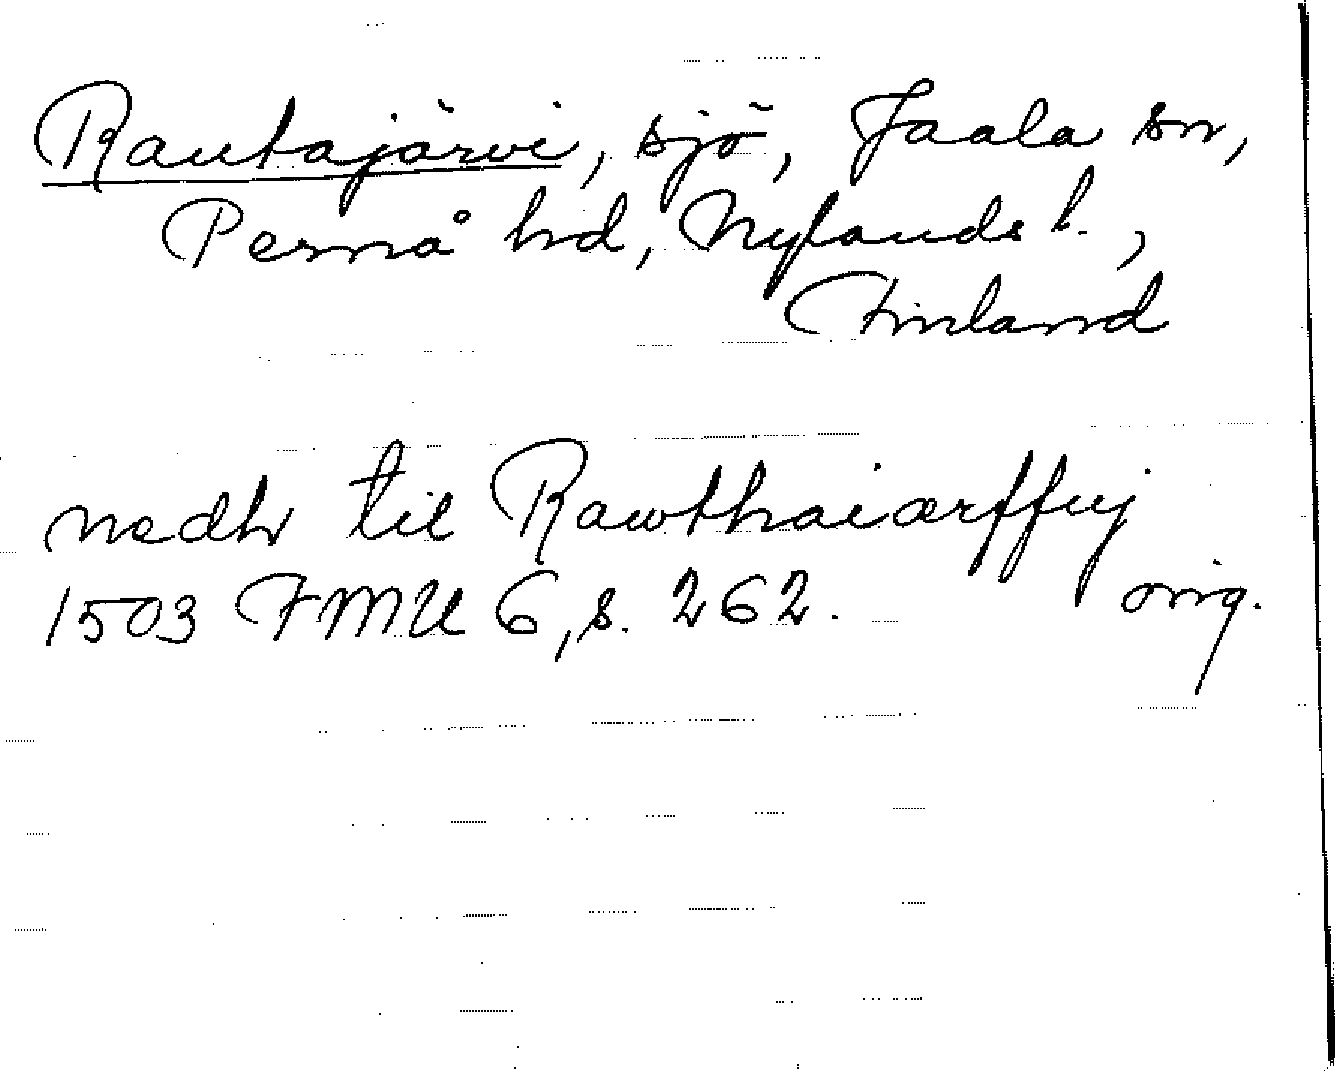 Rautajärvi, sjö, Jaala sn,
Pernå hd, Nylands l.,
Finland
nedh til Rawthaiærffuj
1503 FMU 6, s. 262. orig.